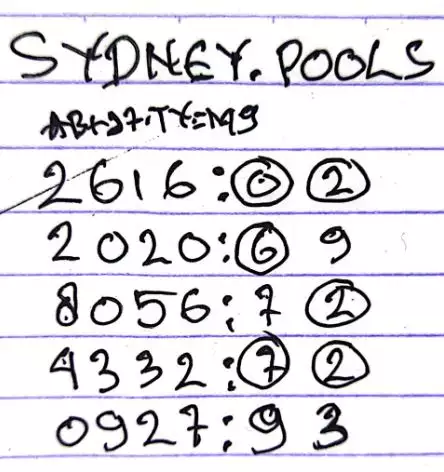 SYDNEY. POOLS
AB+27.TY=M9
2616:0 2
2020:6 9
8056:7 2
4332:7 2
0927:9 3